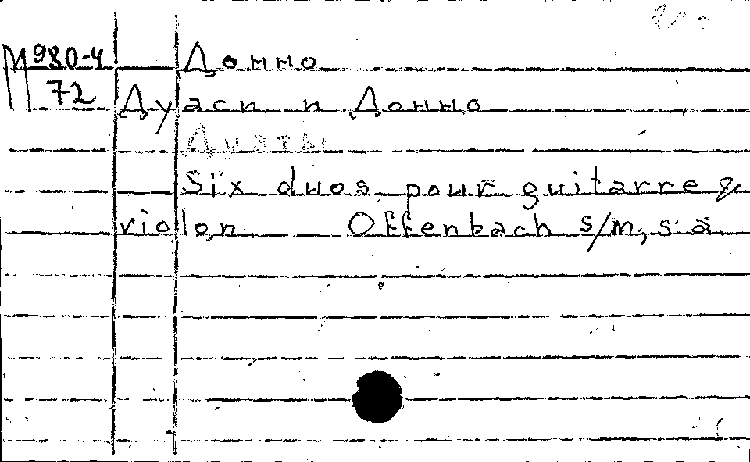 М 980-4 Донно
72 Дуаси и Донно
Дуэты
Six duos pour guitarre &
violon Offenbach s/m, s a